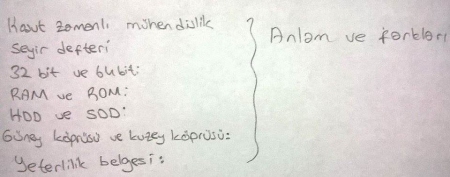 Hasut zamanlı mühendislik
Seyir defteri
32 bit ve 64 bit:
RAM ve ROM:
HDD ve SDD:
Güney köprüsü ve kuzey köprüsü:
Yeterlilik belgesi:
Anlam ve farkları